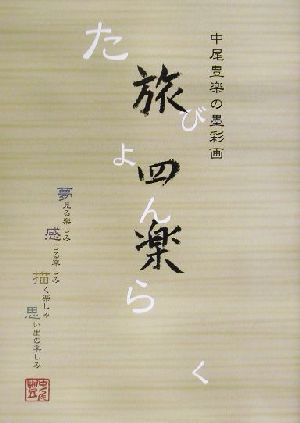 中尾豊楽の墨彩画
旅四楽
たびよんらく
夢見る楽しみ
感じる楽しみ
描く楽しみ
思い出の楽しみ